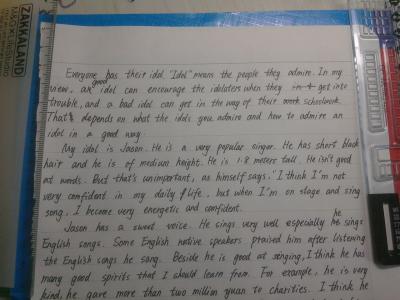 ZAKKALAND
Everyone has their idol. "Idol" means the people they admire. In my
view, an good idol can encourage the idolaters when they in t get into
trouble, and a bad idol can get in the way of their work schoolwork.
That's depends on what the idols you admire and how to admire an
idol in a good way.
My idol is Jason. He is a very popular singer. He has short black
hair and he is of medium height. He is 1.8 meters tall. He isn't good
at words. But that's unimportant, as himself says, "I think I'm not
very confident in my daily life, but when I'm on stage and sing
song, I become very energetic and confident.
Jason has a sweet voice. He sings very well especially he sings
English songs. Some English native speakers praised him after listening
the English songs he sang. Beside he is good at singing, I think he has
many good spirits that I should learn from. For example, he is very
kind, he gave more than two million yuan to charities. I think he